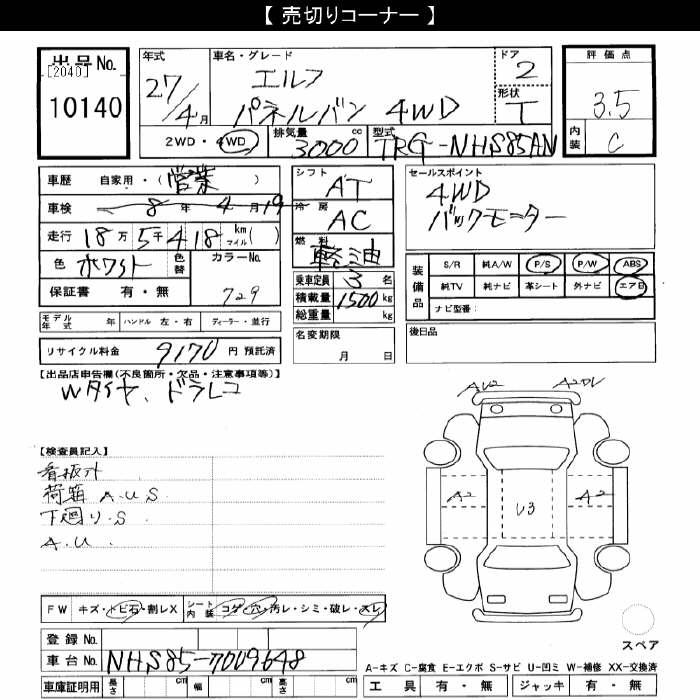 【 売切りコーナー 】
出品No.
[2040]
10140
年式
27/4月
車名・グレード
エルフ
パネルバン 4WD
ドア
2
形状
T
評価点
3.5
内装
C
2WD・4WD
排気量
3000cc
型式
TRG-NHS85AN
車歴 自家用・(営業)
車検 8年4月19
走行 18万5千418 km マイル( )
色 ホワイト 色替
カラーNo.
729
保証書 有・無
モデル年式 年 ハンドル 左・右 ディーラー・並行
リサイクル料金 9170 円 預託済
シフト
AT
冷房
AC
燃料
軽油
乗車定員 3 名
積載量 1500 kg
総重量 kg
名変期限
月 日
セールスポイント
4WD
バックモニター
装備品
S/R 純A/W P/S P/W ABS
純TV 純ナビ 革シート 外ナビ エアB
ナビ型番:
後日品
【出品店申告欄(不良箇所・欠品・注意事項等)】
Wタイヤ、ドラレコ
【検査員記入】
看板汁
荷箱 A.U.S
下廻り.S
A.U.
AU2
A2
U3
A2
FW キズ・トビ石・割レX
シート内装 コゲ・穴・汚レ・シミ・破レ・スレ
登録No.
車台No. NHS85-7009648
車庫証明用 長さ cm 幅 cm 高さ cm
スペア
A-キズ C-腐食 E-エクボ S-サビ U-凹ミ W-補修 XX-交換済
工具 有・無 ジャッキ 有・無